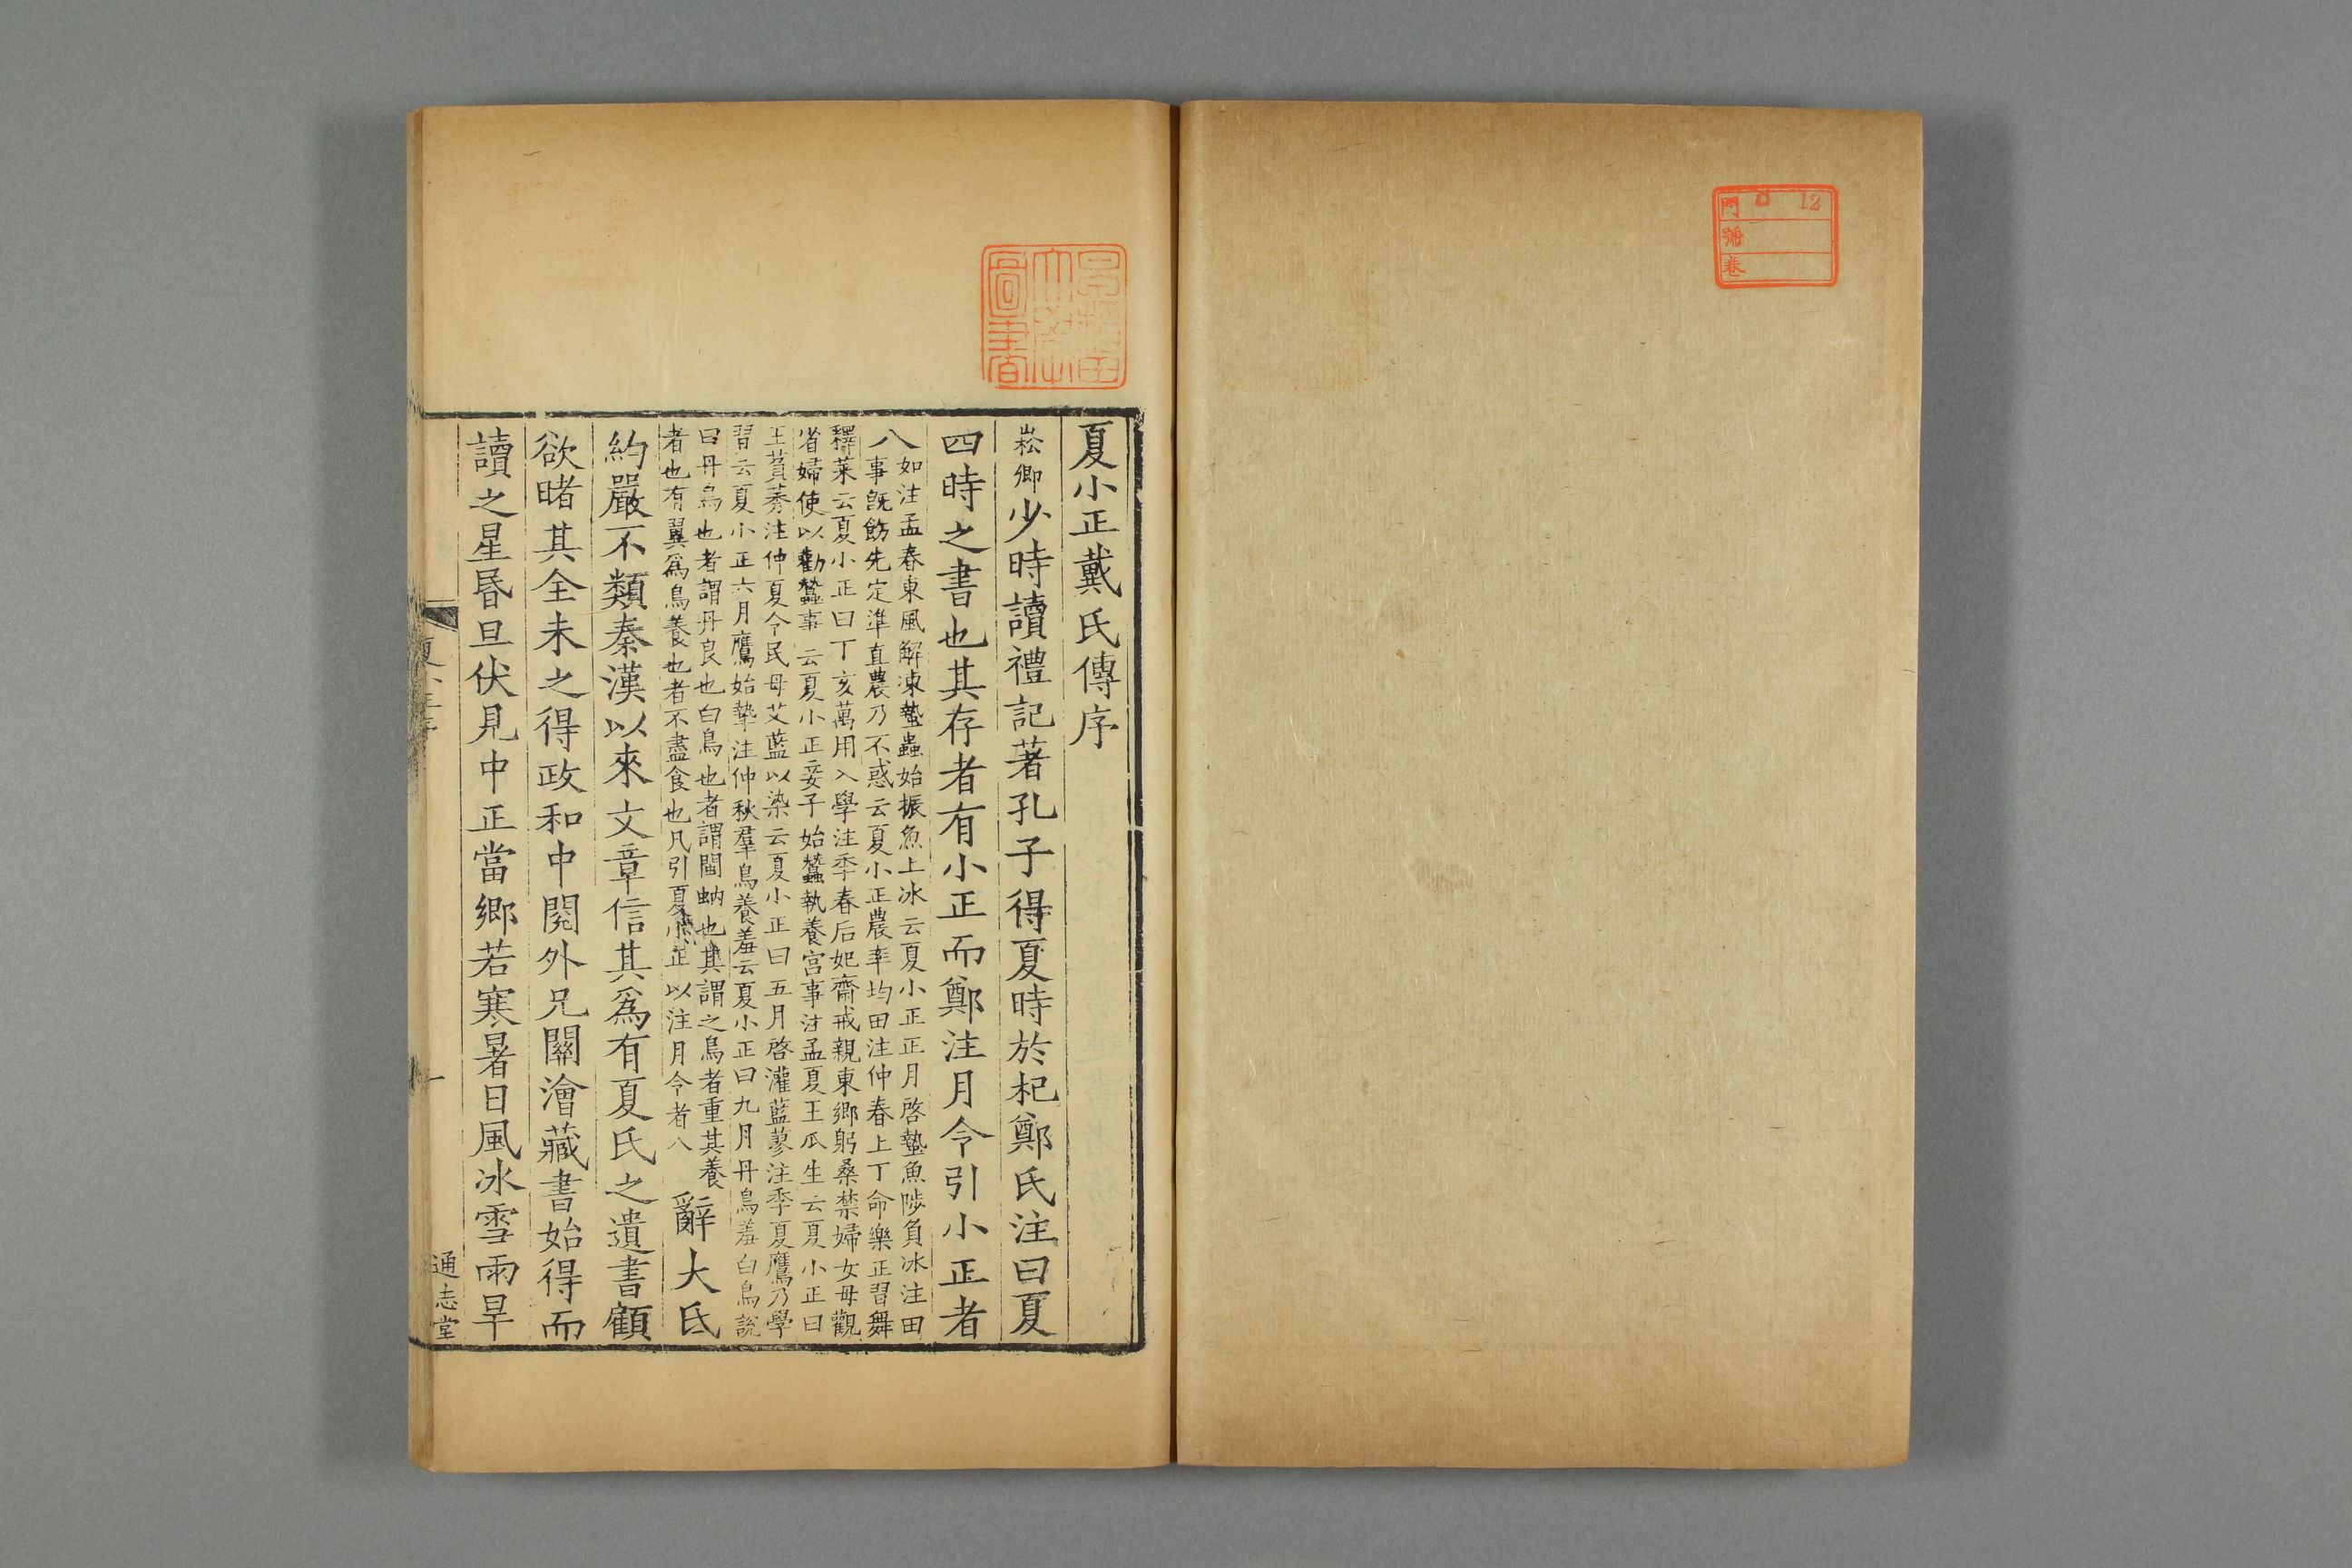 門 ロ 12
號
卷
早稻田
大學
圖書
夏小正戴氏傳序
崧卿少時讀禮記著孔子得夏時於杞鄭氏注曰夏
四時之書也其存者有小正而鄭注月令引小正者
八如注孟春東風解凍蟄蟲始振魚上冰云夏小正正月啓蟄魚陟負冰注田
事既飭先定準直農乃不惑云夏小正農率均田注仲春上丁命樂正習舞
釋菜云夏小正曰丁亥萬用入學注季春后妃齋戒親東鄉躬桑禁婦女毋觀
省婦使以勸蠶事云夏小正妾子始蠶執養宮事注孟夏王瓜生云夏小正曰
王萯莠注仲夏令民毋艾藍以染云夏小正曰五月啓灌藍蓼注季夏鷹乃學
習云夏小正六月鷹始摯注仲秋羣鳥養羞云夏小正曰九月丹鳥羞白鳥說
曰丹鳥也者謂丹良也白鳥也者謂閩蚋也其謂之鳥者重其養
者也有翼爲鳥養也者不盡食也凡引夏小正以注月令者八
辭大氐
約嚴不類秦漢以來文章信其爲有夏氏之遺書顧
欲睹其全未之得政和中閱外兄關澮藏書始得而
讀之星昏旦伏見中正當鄉若寒暑日風冰雪雨旱
夏小正序
一
通志堂